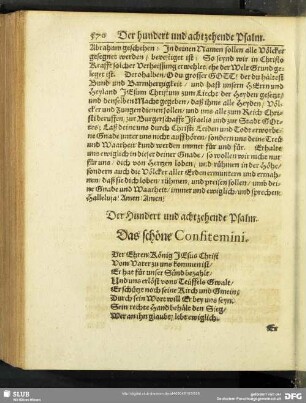 570 Der hundert und achtzehende Psalm.
Abraham geschehen: In deinen Namen sollen alle Völcker
gesegnet werden, bevestiget ist: So seynd wir in Christo
Krafft solcher Verheissung erwehlet, ehe der Welt Grund ge
leget ist. Derohalben, O du grosser GOTT, der du hältest
Bund und Barmhertzigkeit, und hast unsern HErrn und
Heyland JEsum Christum zum Liecht der Heyden gesetzt,
und denselben Macht gegeben, daß ihme alle Heyden, Völ-
cker und Zungen dienen sollen, und uns alle zum Reich Chri-
sti beruffen, zur Burgerschafft Israels und zur Stadt GOt-
tes; Laß deine uns durch Christi Leyden und Todt erworbe-
ne Gnade unter uns nicht auffhören, sondern uns deine Treü
und Waarheit kund werden immer für und für. Erhalte
uns ewiglich in dieser deiner Gnade, so wollen wir nicht nur
für uns, dich von Hertzen loben, und rühmen in der Höhe,
sondern auch die Völcker aller Erden ermuntern und ermah-
nen, daß sie dich loben, rühmen, und preisen sollen, umb dei-
ne Gnade und Waarheit, immer und ewiglich, und sprechen:
Halleluja! Amen! Amen!
Der Hundert und achtzehende Psalm.
Das schöne Confitemini.
Der Ehren König JEsus Christ
Vom Vater zu uns kommen ist,
Er hat für unser Sünd bezahlt,
Und uns erlöst vons Teüffels Gwalt,
Er schützt noch seine Kirch und Gmein,
Durch sein Wort will Er bey uns seyn.
Sein rechte Hand behält den Sieg,
Wer an ihn glaubt, lebt ewiglich.
SLUB
DFG